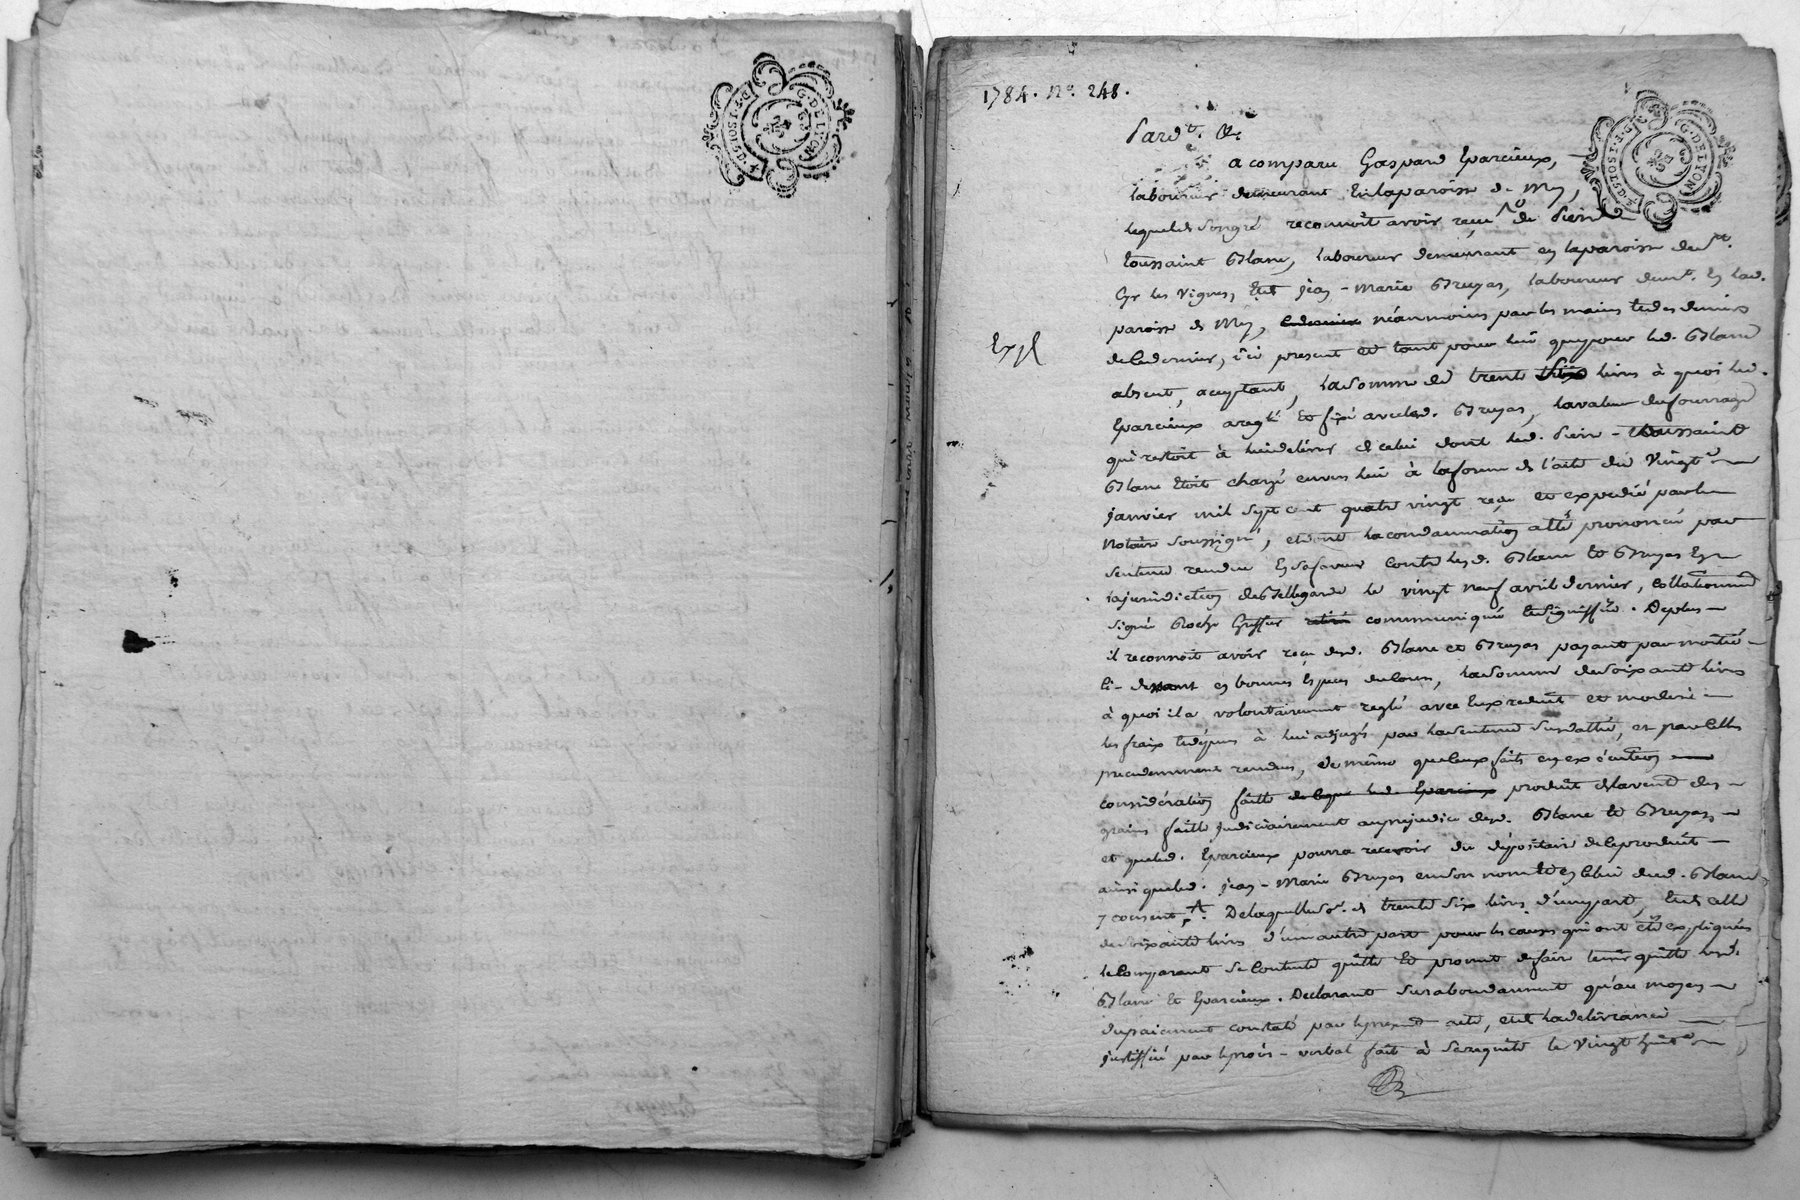 G. DE LYON
1784. No. 248.
Pardt. &c.
a comparu Gaspard Eparcieux,
laboureur demeurant en la paroisse de Mey,
lequel de son gré reconnoît avoir reçu de Pierre
toussaint Blanc, laboureur demeurant en la paroisse de St.
Cyr les Vignes, et de jean-Marie Bruyas, laboureur demt. en lad.
paroisse de Mey, néanmoins par les mains et des deniers
de ce dernier, ici present et tant pour lui que pour led. Blanc
absent, acceptant, la somme de trente six livres à quoi led.
Eparcieux a reglé et fixé avec led. Bruyas, la valeur du fourrage
qui restoit à lui delivrer de celui dont led. Pierre-toussaint
Blanc étoit chargé envers lui à la forme de l'acte du vingt
janvier mil sept cent quatre vingt reçu et expedié par le
Notaire soussigné, et dont la condamnation a été prononcée par
sentence rendue en sa faveur contre lesd. Blanc et Bruyas en
la jurisdiction de Bellegarde le vingt neuf avril dernier, collationné
signé Roche Greffier communiqué et signiffié. De plus
il reconnoît avoir reçu desd. Blanc et Bruyas payant par moitié
ci-devant en bonnes espèces de cours, la somme de soixante livres
à quoi il a volontairement reglé avec eux reduit et moderé
les fraix et dépens à lui adjugés par la sentence susdattée, et par celles
precedemment rendues, de même que ceux faits en exécution
considération faitte produit de la vente des
grains faitte judiciairement au prejudice desd. Blanc et Bruyas,
et que led. Eparcieux pourra recevoir du dépositaire de ce produit
ainsi que led. jean-Marie Bruyas en son nom et en celui dud. Blanc
y consent. De laquelle so. de trente six livres d'une part, et de celle
de soixante livres d'un autre part pour les causes qui ont été expliquées
le comparant se contente quitte et promet de faire tenir quitte lesd.
Blanc et Eparcieux. Declarant surabondamment qu'au moyen
du paiement constaté par le present acte, et de la delivrance
justiffiée par le procès-verbal fait à sa requête le vingt huit
Expl
G. DE LYON